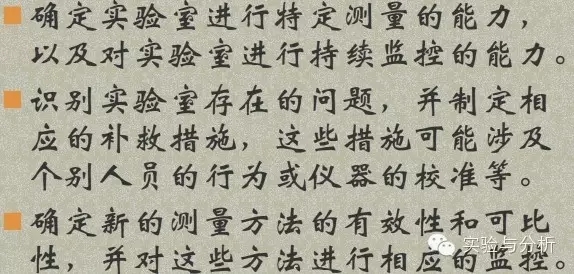 确定实验室进行特定测量的能力，
以及对实验室进行持续监控的能力。
识别实验室存在的问题，并制定相
应的补救措施，这些措施可能涉及
个别人员的行为或仪器的校准等。
确定新的测量方法的有效性和可比
性，并对这些方法进行相应的监控。
实验与分析